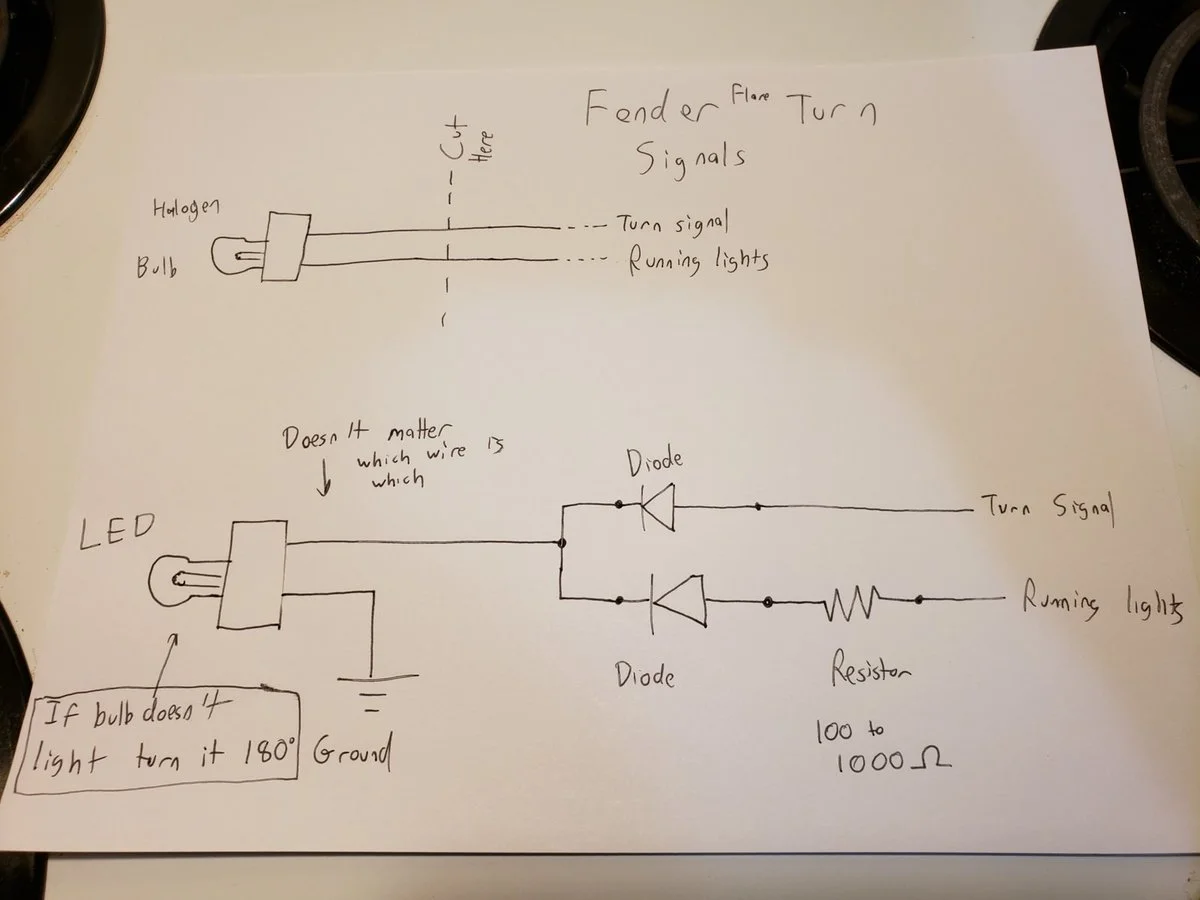 Fender Flare Turn
Signals
Cut
Here
Halogen
Bulb
Turn signal
Running lights
Doesn't matter
which wire is
which
LED
Diode
Turn Signal
Running lights
Diode
Resistor
100 to
1000 Ω
If bulb doesn't
light turn it 180°
Ground